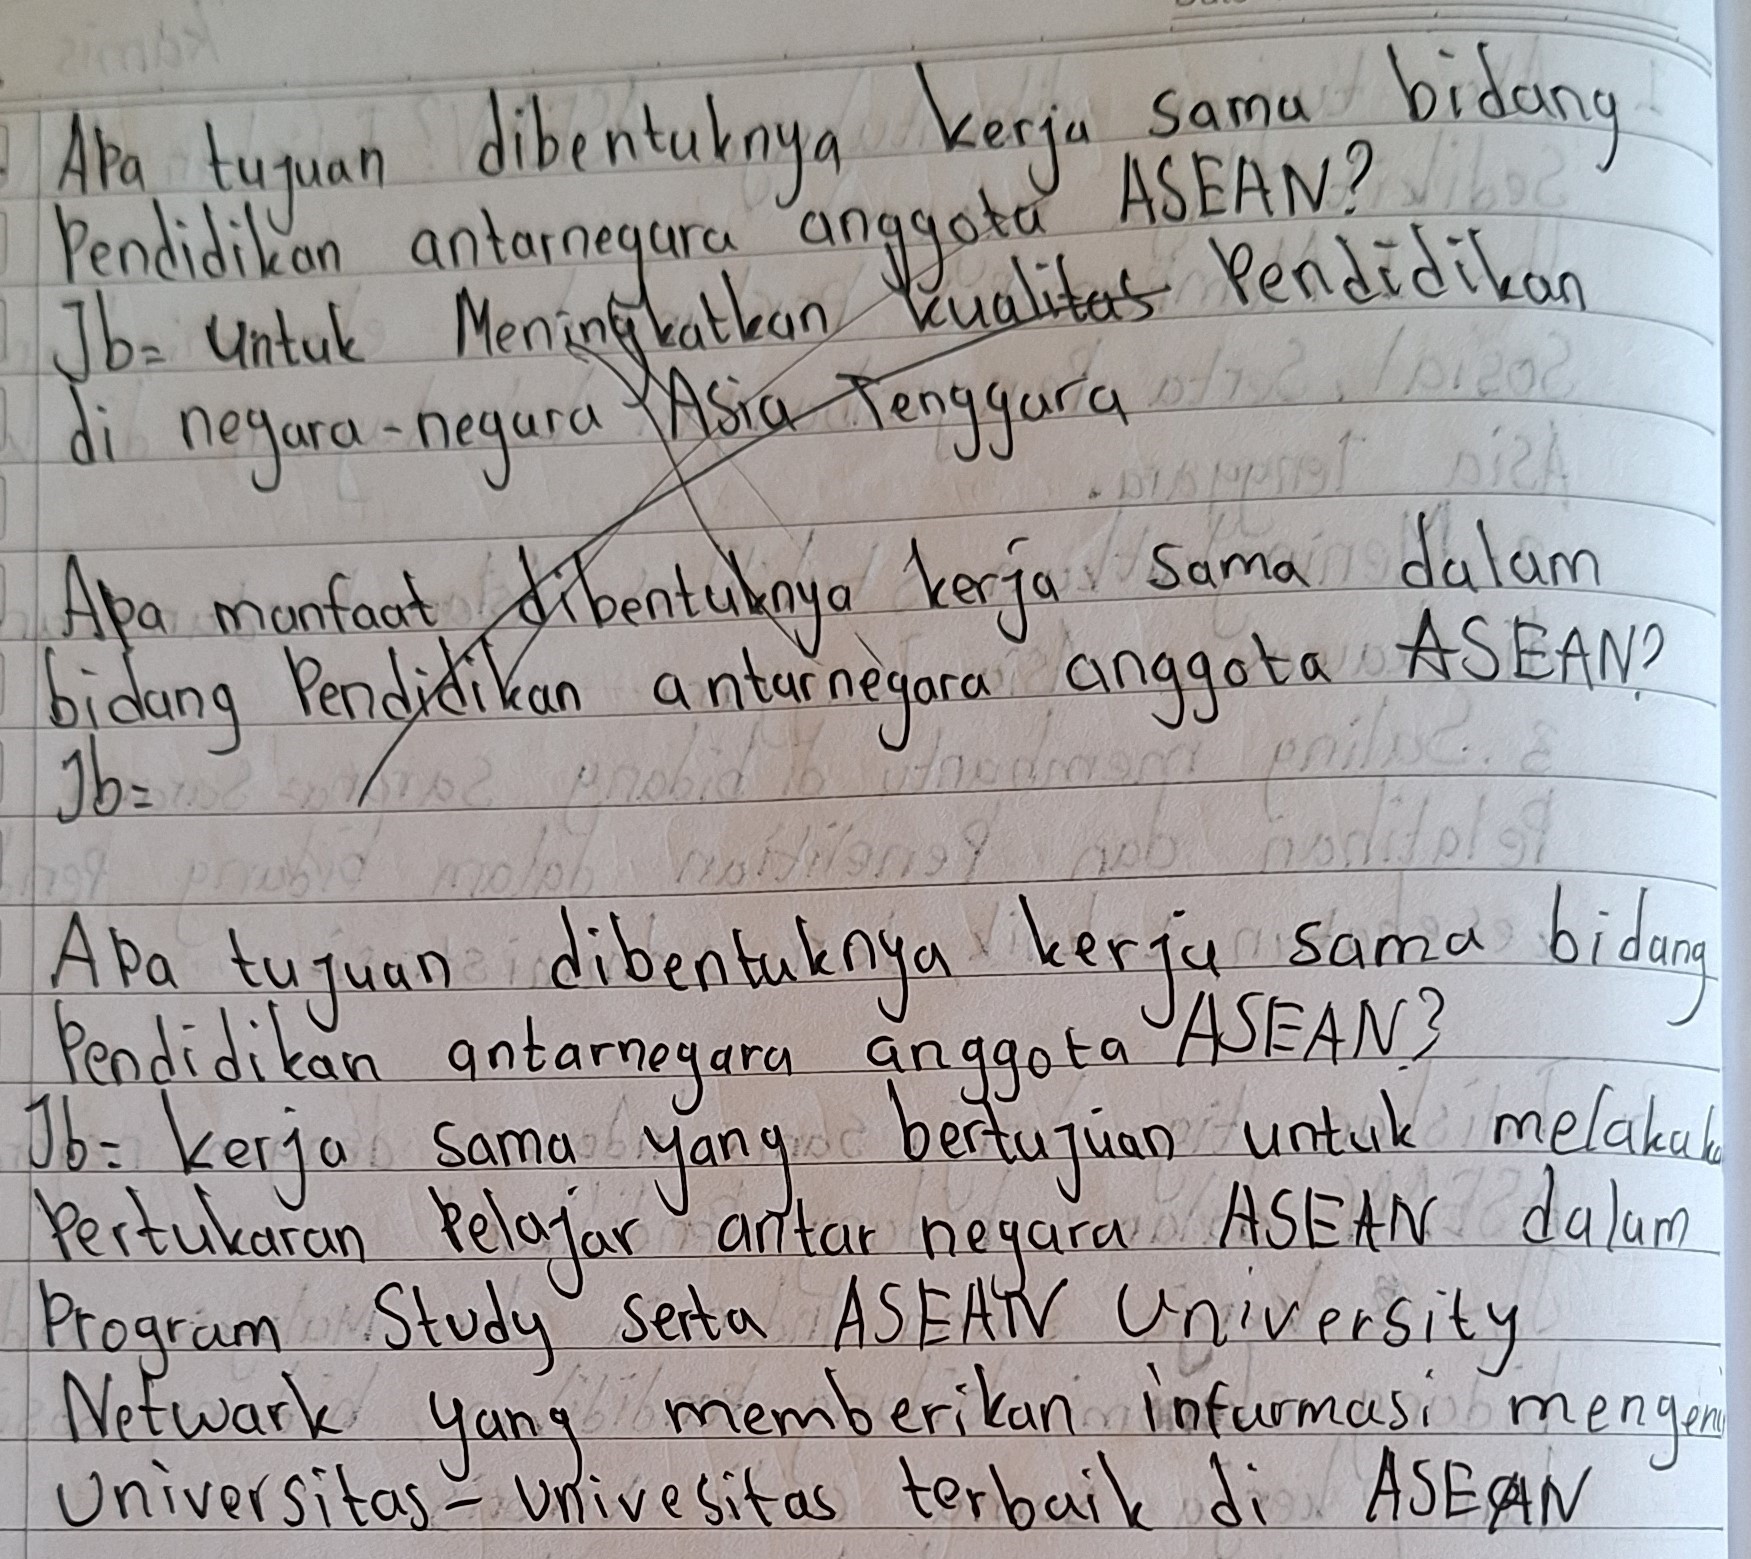 Apa tujuan dibentuknya kerja sama bidang
Pendidikan antarnegara anggota ASEAN?
Jb= Untuk Meningkatkan kualitas Pendidikan
di negara-negara Asia Tenggara
Apa manfaat dibentuknya kerja sama dalam
bidang Pendidikan antarnegara anggota ASEAN?
Jb=
Apa tujuan dibentuknya kerja sama bidang
Pendidikan antarnegara anggota ASEAN?
Jb= kerja sama yang bertujuan untuk
Pertukaran Pelajar antar negara ASEAN dalam
Program Study serta ASEAN University
Netwark yang memberikan infurmasi
Universitas-univesitas terbaik di ASEAN